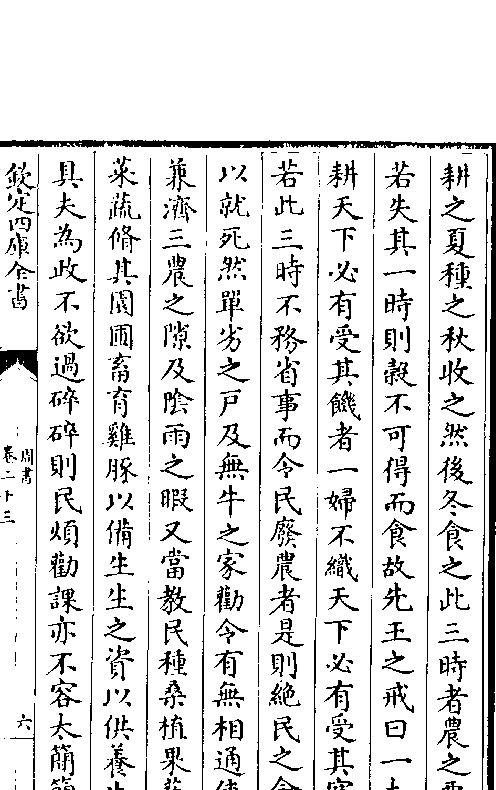 耕之夏種之秋收之然後冬食之此三時者農之
若失其一時則穀不可得而食故先王之戒曰一
耕天下必有受其饑者一婦不織天下必有受其
若此三時不務省事而令民廢農者是則絶民之
以就死然單劣之戸及無牛之家勸令有無相通
兼濟三農之隙及陰雨之暇又當教民種桑植果
菜蔬脩其園圃畜育雞豚以備生生之資以供養
具夫為政不欲過碎碎則民煩勸課亦不容太簡
欽定四庫全書
周書
卷二十三
六